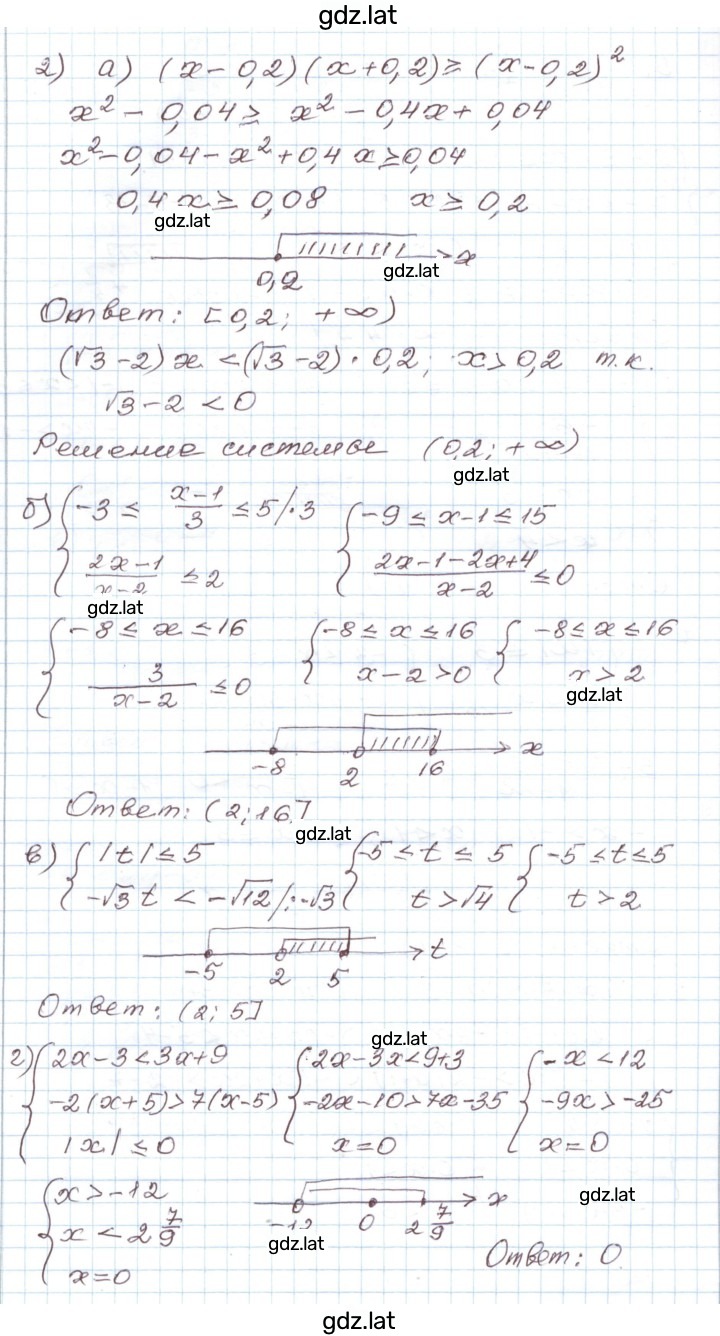 gdz.lat
2) а) (x-0,2)(x+0,2)≥(x-0,2)²
x² - 0,04 ≥ x² - 0,4x + 0,04
x²-0,04-x²+0,4x≥0,04
0,4x≥0,08 x≥0,2
gdz.lat
gdz.lat
0,2 x
Ответ: [0,2; +∞)
(√3-2)x<(√3-2)·0,2; x>0,2 т.к.
√3-2<0
Решение системы (0,2; +∞)
gdz.lat
б) {-3 ≤ (x-1)/3 ≤5/·3 {-9 ≤ x-1≤15
(2x-1)/(x-2) ≤2 (2x-1-2x+4)/(x-2) ≤0
gdz.lat
{-8 ≤ x ≤16 {-8 ≤ x ≤16 { -8≤x≤16
3/(x-2) ≤0 x-2>0 x>2
gdz.lat
-8 2 16 x
Ответ: (2;16]
gdz.lat
в) {|t|≤5 {-5 ≤t ≤ 5 {-5≤t≤5
-√3t < -√12/:-√3 t>√4 t>2
-5 2 5 t
Ответ: (2; 5]
gdz.lat
г) {2x-3<3x+9 {2x-3x<9+3 {-x<12
-2(x+5)>7(x-5) -2x-10>7x-35 -9x>-25
|x|≤0 x=0 x=0
{x>-12
x<2 7/9
x=0
-12 0 2 7/9 x
gdz.lat
gdz.lat
Ответ: 0.
gdz.lat